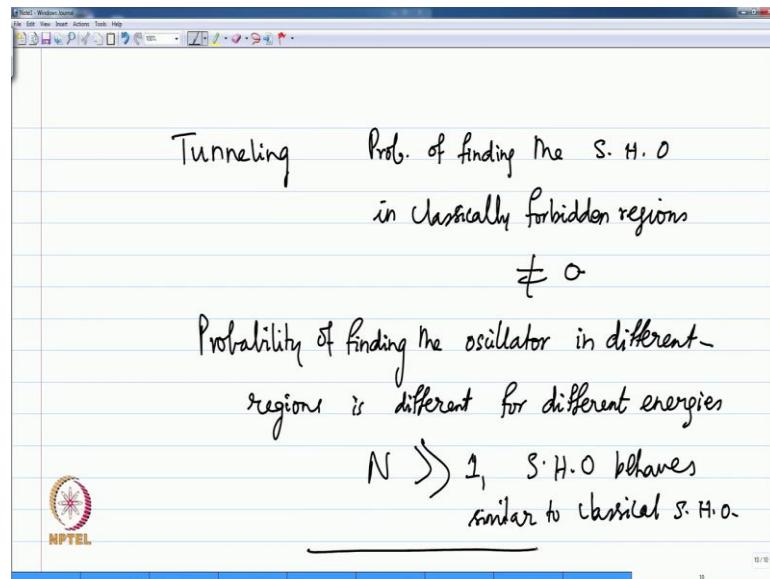 Note1 - Windows Journal
File Edit View Insert Actions Tools Help
Tunneling Prob. of finding the S. H. O
in classically forbidden regions
≠ 0
Probability of finding the oscillator in different-
regions is different for different energies
N >> 1, S.H.O behaves
similar to classical S.H.O.
NPTEL
10/10
10